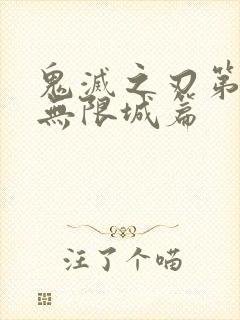 鬼滅之刃第
無限城篇
注了个喵